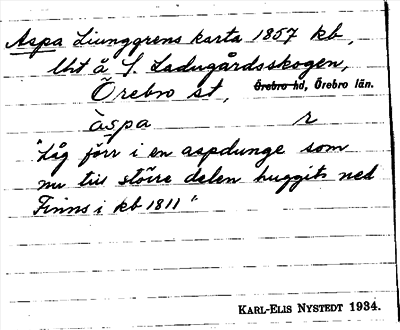 Aspa Liunggrens karta 1857 kb,
lht å f. Ladugårdsskogen,
Örebro st, Örebro hd, Örebro län.
àspa r
"Låg förr i en aspdunge som
nu till större delen huggits ned
Finns i kb 1811"
KARL-ELIS NYSTEDT 1934.